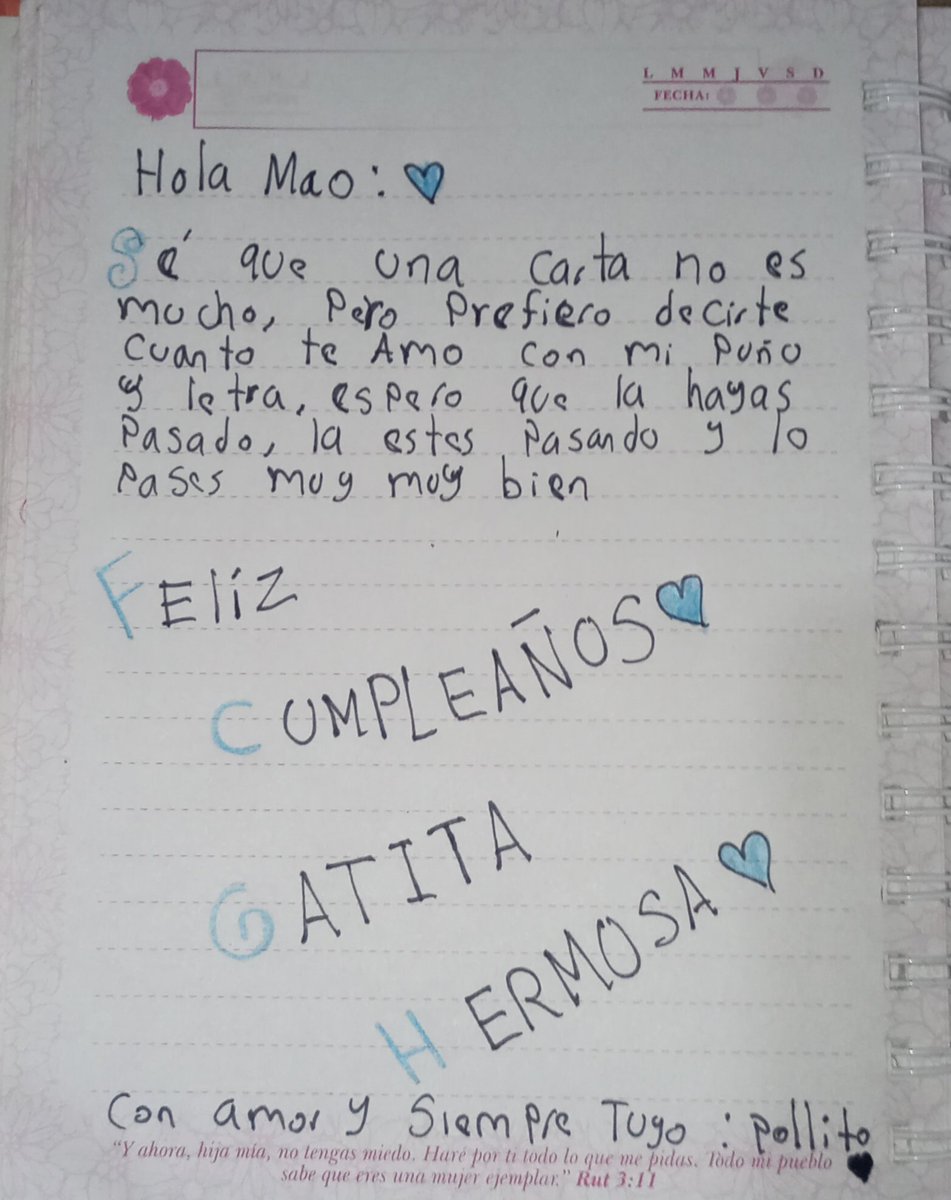 L M M J V S D
FECHA:
Hola Mao:
Sé que una carta no es
mucho, Pero Prefiero decirte
Cuanto te Amo con mi Puño
y letra, espero que la hayas
Pasado, la estes Pasando y lo
Pases muy muy bien
FElíZ
CUMPLEAÑOS
GATITA
HERMOSA
Con amor y Siempre Tuyo : pollito
“Y ahora, hija mía, no tengas miedo. Haré por ti todo lo que me pidas. Todo mi pueblo
sabe que eres una mujer ejemplar.” Rut 3:11